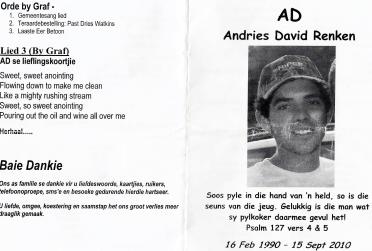 Orde by Graf -
1. Gemeentesang lied
2. Teraardebestelling: Past Dries Watkins
3. Laaste Eer Betoon
Lied 3 (By Graf)
AD se lieflingskoortjie
Sweet, sweet anointing
Flowing down to make me clean
Like a mighty rushing stream
Sweet, so sweet anointing
Pouring out the oil and wine all over me
Herhaal.....
Baie Dankie
Ons as familie se dankie vir u liefdeswoorde, kaartjies, ruikers,
telefoonoproepe, sms'e en besoeke gedurende hierdie hartseer.
U liefde, omgee, koestering en saamstap het ons groot verlies meer
draaglik gemaak.
AD
Andries David Renken
Soos pyle in die hand van 'n held, so is die
seuns van die jeug. Gelukkig is die man wat
sy pylkoker daarmee gevul het!
Psalm 127 vers 4 & 5
16 Feb 1990 - 15 Sept 2010